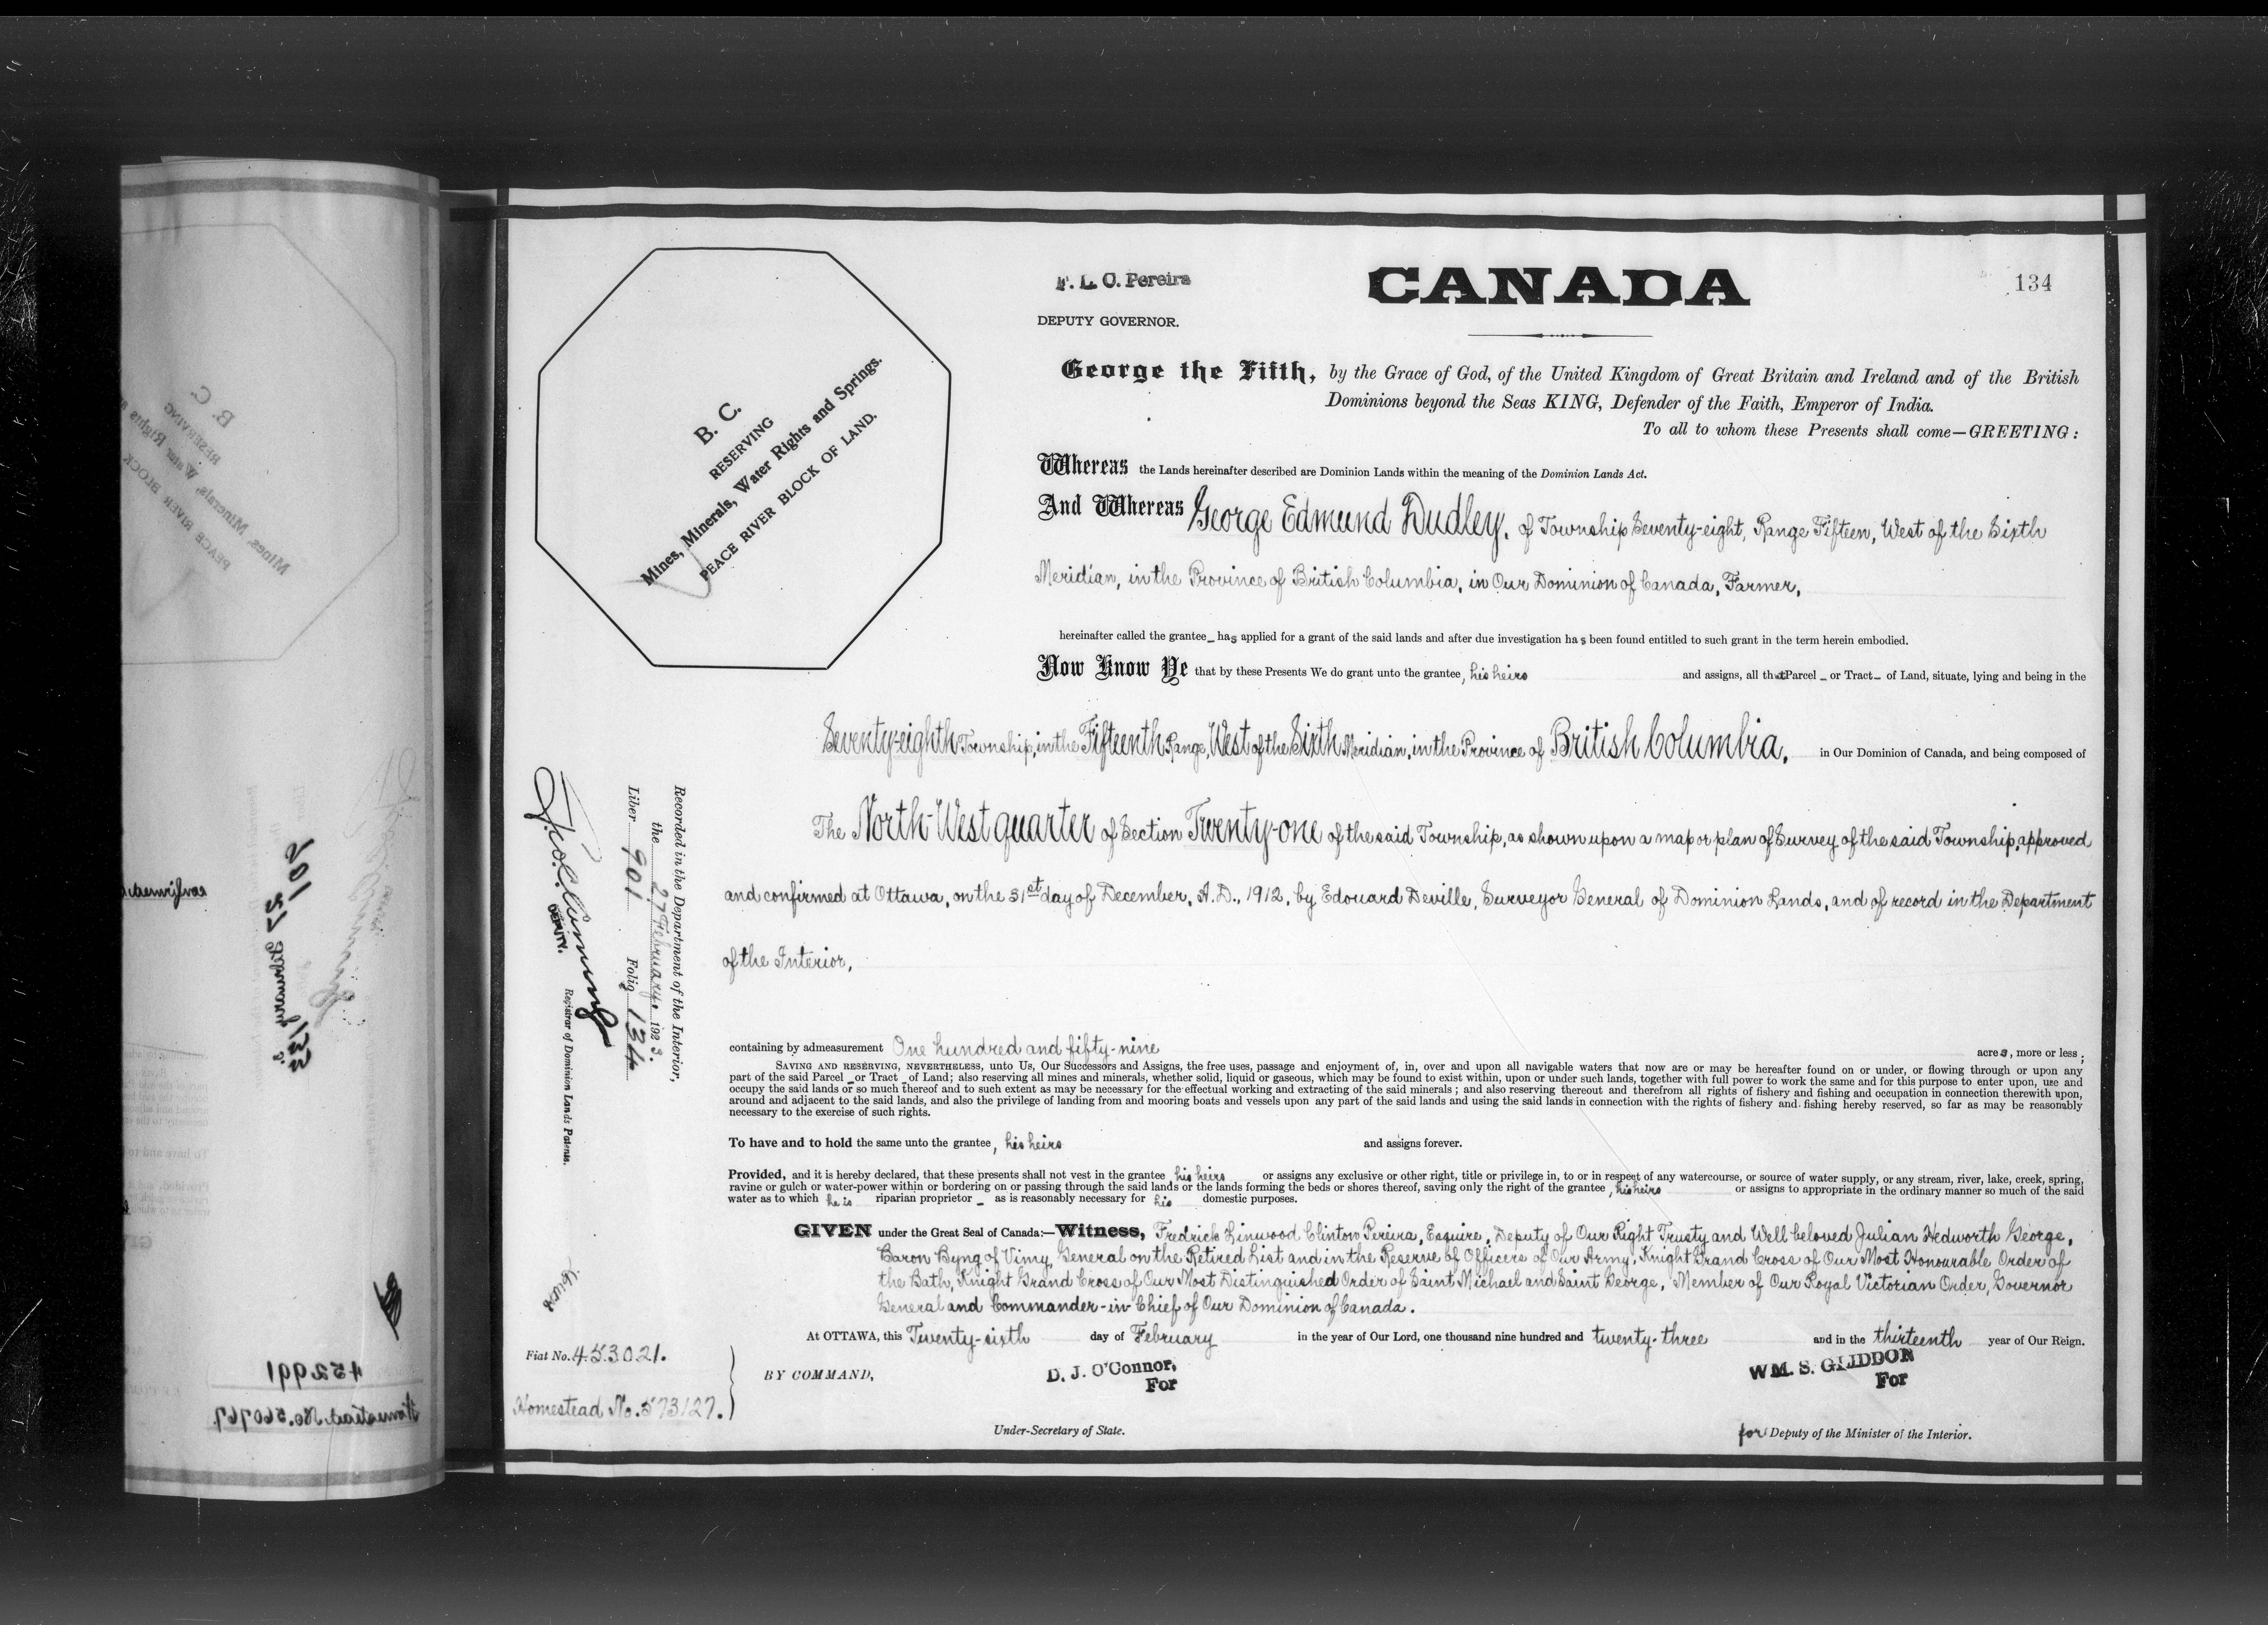 F. L. C. Pereira
DEPUTY GOVERNOR.
CANADA
134
George the Fifth, by the Grace of God, of the United Kingdom of Great Britain and Ireland and of the British
Dominions beyond the Seas KING, Defender of the Faith, Emperor of India.
To all to whom these Presents shall come—GREETING:
B. C.
RESERVING
Mines, Minerals, Water Rights and Springs.
PEACE RIVER BLOCK OF LAND.
Whereas the Lands hereinafter described are Dominion Lands within the meaning of the Dominion Lands Act.
And Whereas George Edmund Dudley, of Township Seventy-eight, Range Fifteen, West of the Sixth
Meridian, in the Province of British Columbia, in Our Dominion of Canada, Farmer,
hereinafter called the grantee_ has applied for a grant of the said lands and after due investigation has been found entitled to such grant in the term herein embodied.
Now Know Ye that by these Presents We do grant unto the grantee, his heirs and assigns, all that Parcel _ or Tract _ of Land, situate, lying and being in the
Seventy-eighth Township, in the Fifteenth Range, West of the Sixth Meridian, in the Province of British Columbia, in Our Dominion of Canada, and being composed of
The North-West quarter of Section Twenty-one of the said Township, as shown upon a map or plan of Survey of the said Township, approved
and confirmed at Ottawa, on the 31st day of December, A.D., 1912, by Edouard Deville, Surveyor General of Dominion Lands, and of record in the Department
of the Interior,
containing by admeasurement One hundred and fifty-nine acres, more or less;
SAVING AND RESERVING, NEVERTHELESS, unto Us, Our Successors and Assigns, the free uses, passage and enjoyment of, in, over and upon all navigable waters that now are or may be hereafter found on or under, or flowing through or upon any
part of the said Parcel _ or Tract _ of Land; also reserving all mines and minerals, whether solid, liquid or gaseous, which may be found to exist within, upon or under such lands, together with full power to work the same and for this purpose to enter upon, use and
occupy the said lands or so much thereof and to such extent as may be necessary for the effectual working and extracting of the said minerals; and also reserving thereout and therefrom all rights of fishery and fishing and occupation in connection therewith upon,
around and adjacent to the said lands, and also the privilege of landing from and mooring boats and vessels upon any part of the said lands and using the said lands in connection with the rights of fishery and fishing hereby reserved, so far as may be reasonably
necessary to the exercise of such rights.
To have and to hold the same unto the grantee, his heirs and assigns forever.
Provided, and it is hereby declared, that these presents shall not vest in the grantee his heirs or assigns any exclusive or other right, title or privilege in, to or in respect of any watercourse, or source of water supply, or any stream, river, lake, creek, spring,
ravine or gulch or water-power within or bordering on or passing through the said lands or the lands forming the beds or shores thereof, saving only the right of the grantee, his heirs or assigns to appropriate in the ordinary manner so much of the said
water as to which he is riparian proprietor _ as is reasonably necessary for his domestic purposes.
GIVEN under the Great Seal of Canada:—Witness, Fredrick Linwood Clinton Pereira, Esquire, Deputy of Our Right Trusty and Well beloved Julian Hedworth George,
Baron Byng of Vimy, General on the Retired List and in the Reserve of Officers of Our Army, Knight Grand Cross of Our Most Honourable Order of
the Bath, Knight Grand Cross of Our Most Distinguished Order of Saint Michael and Saint George, Member of Our Royal Victorian Order, Governor
General and Commander-in-Chief of Our Dominion of Canada.
At OTTAWA, this Twenty-sixth day of February in the year of Our Lord, one thousand nine hundred and twenty-three and in the thirteenth year of Our Reign.
BY COMMAND,
D. J. O'Connor,
For
Under-Secretary of State.
WM. S. GLIDDON
For
for Deputy of the Minister of the Interior.
Recorded in the Department of the Interior,
the 27 February, 1923.
Liber 901 Folio 134
DEPUTY.
Registrar of Dominion Lands Patents.
Fiat No. 453021.
Homestead No. 573127.
452991
Homestead No. 560767.